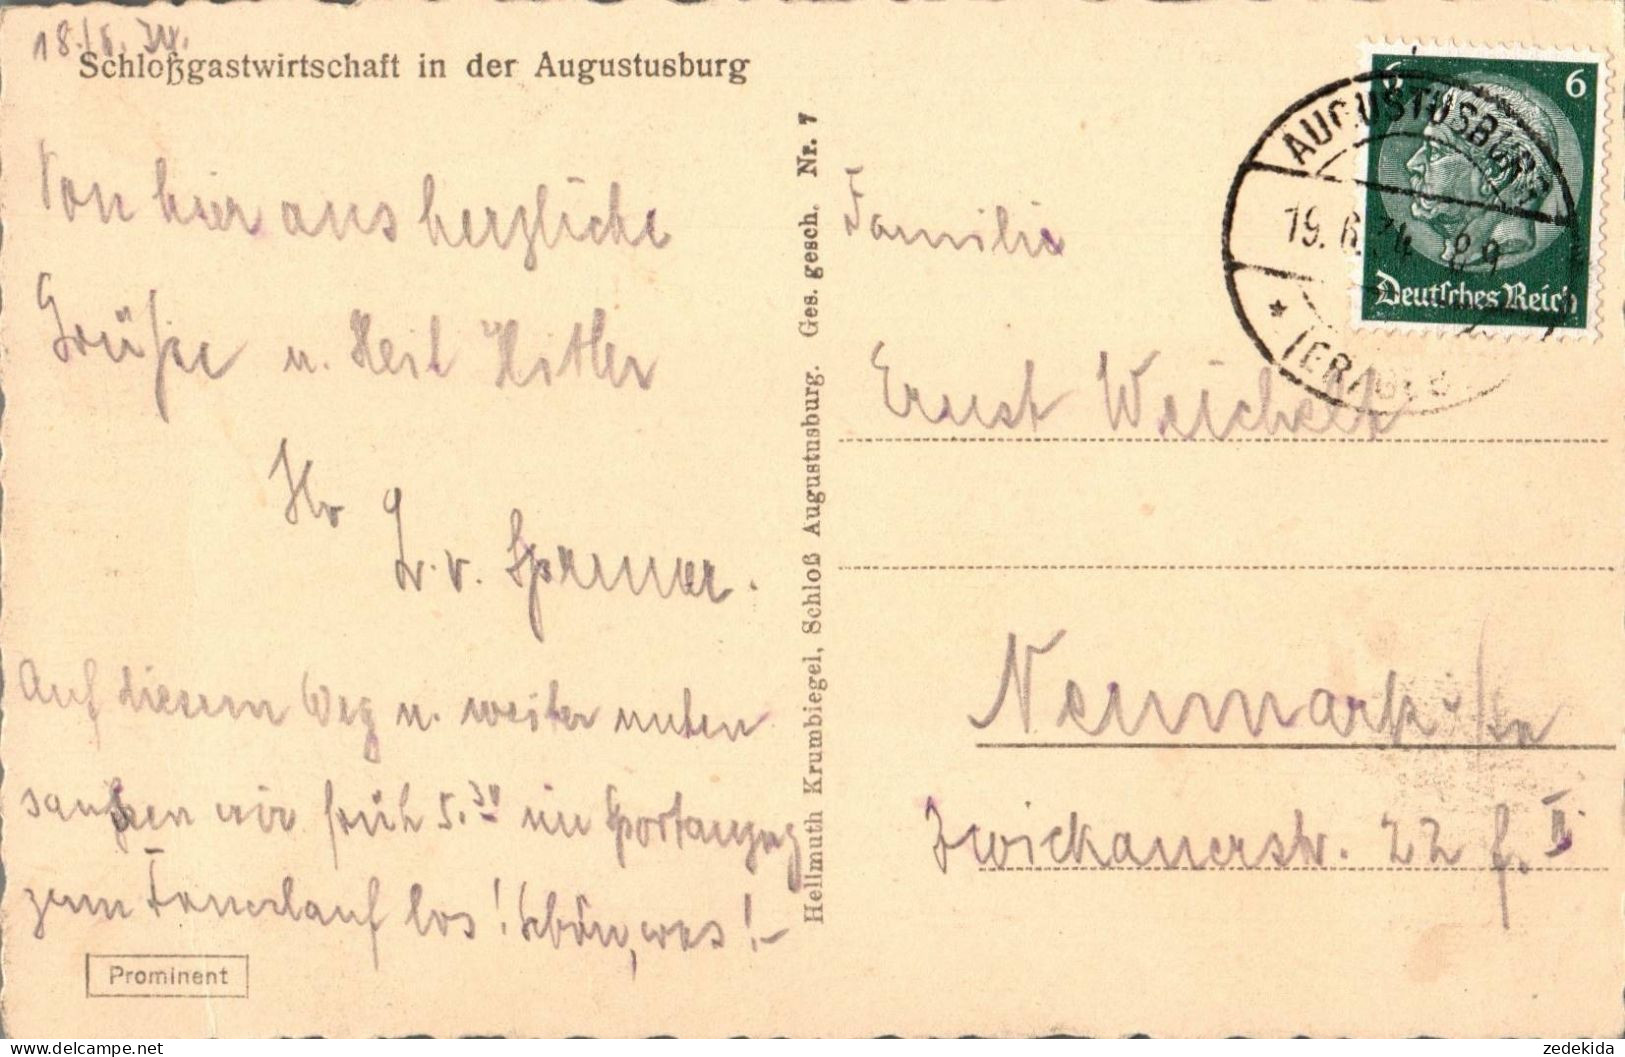 18./6.34.
Schloßgastwirtschaft in der Augustusburg
Von hier aus herzliche
Grüße u. Heil Hitler
Ihr
Auf diesem Weg u. weiter unten
sausen wir früh 5.30 im Sportanzug
zum Dauerlauf los! Schön, was!-
Prominent
Hellmuth Krumbiegel, Schloß Augustusburg. Ges. gesch. Nr. 7
6 6
Deutsches Reich
AUGUSTUSBURG
19. 6. 34. 8-9
* (ERZGEB
Familie
Ernst Weichelt
Neumark i/Sa
Zwickauerstr. 22 f. II.
zedekida